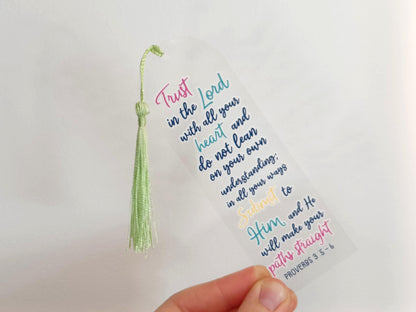 Trust
in the Lord
with all your
heart and
do not lean
on your own
understanding;
in all your ways
Submit to
Him, and He
will make your
paths straight
PROVERBS 3 5-6